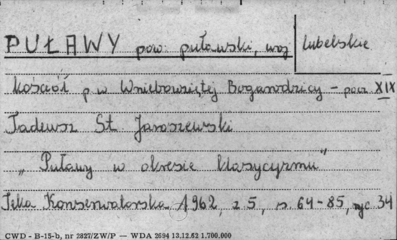 PUŁAWY pow. puławski, woj lubelskie
kościół p w Wniebowziętej Bogarodzicy - pocz XIX
Tadeusz St Jaroszewski
„Puławy w okresie klasycyzmu"
Teka Konserwatorska 1962, z 5, s. 64-85, ryc 34
CWD - B-15-b, nr 2827/ZW/P — WDA 2694 13.12.62 1.700.000